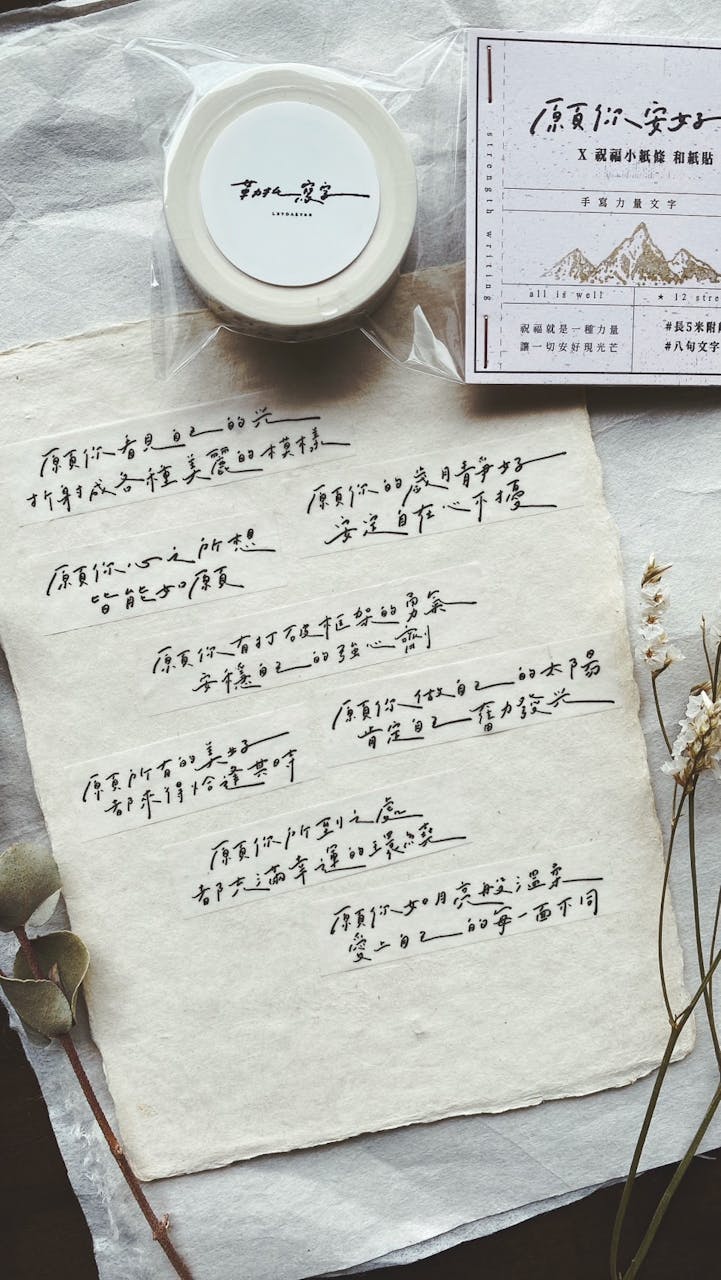 願你安好
X 祝福小紙條 和紙貼
手寫力量文字
strength writing
all is well
★ 12 stre
祝福就是一種力量
讓一切安好現光芒
#長5米附
#八句文字
寫字
願你看見自己的光
折射成各種美麗的模樣
願你的歲月靜好
安定自在心不擾
願你心之所想
皆能如願
願你有打破框架的勇氣
安穩自己的強心劑
願你做自己的太陽
肯定自己奮力發光
願所有的美好
都來得恰逢其時
願你所到之處
都充滿幸運的環繞
願你如月亮般溫柔
愛上自己的每一面不同